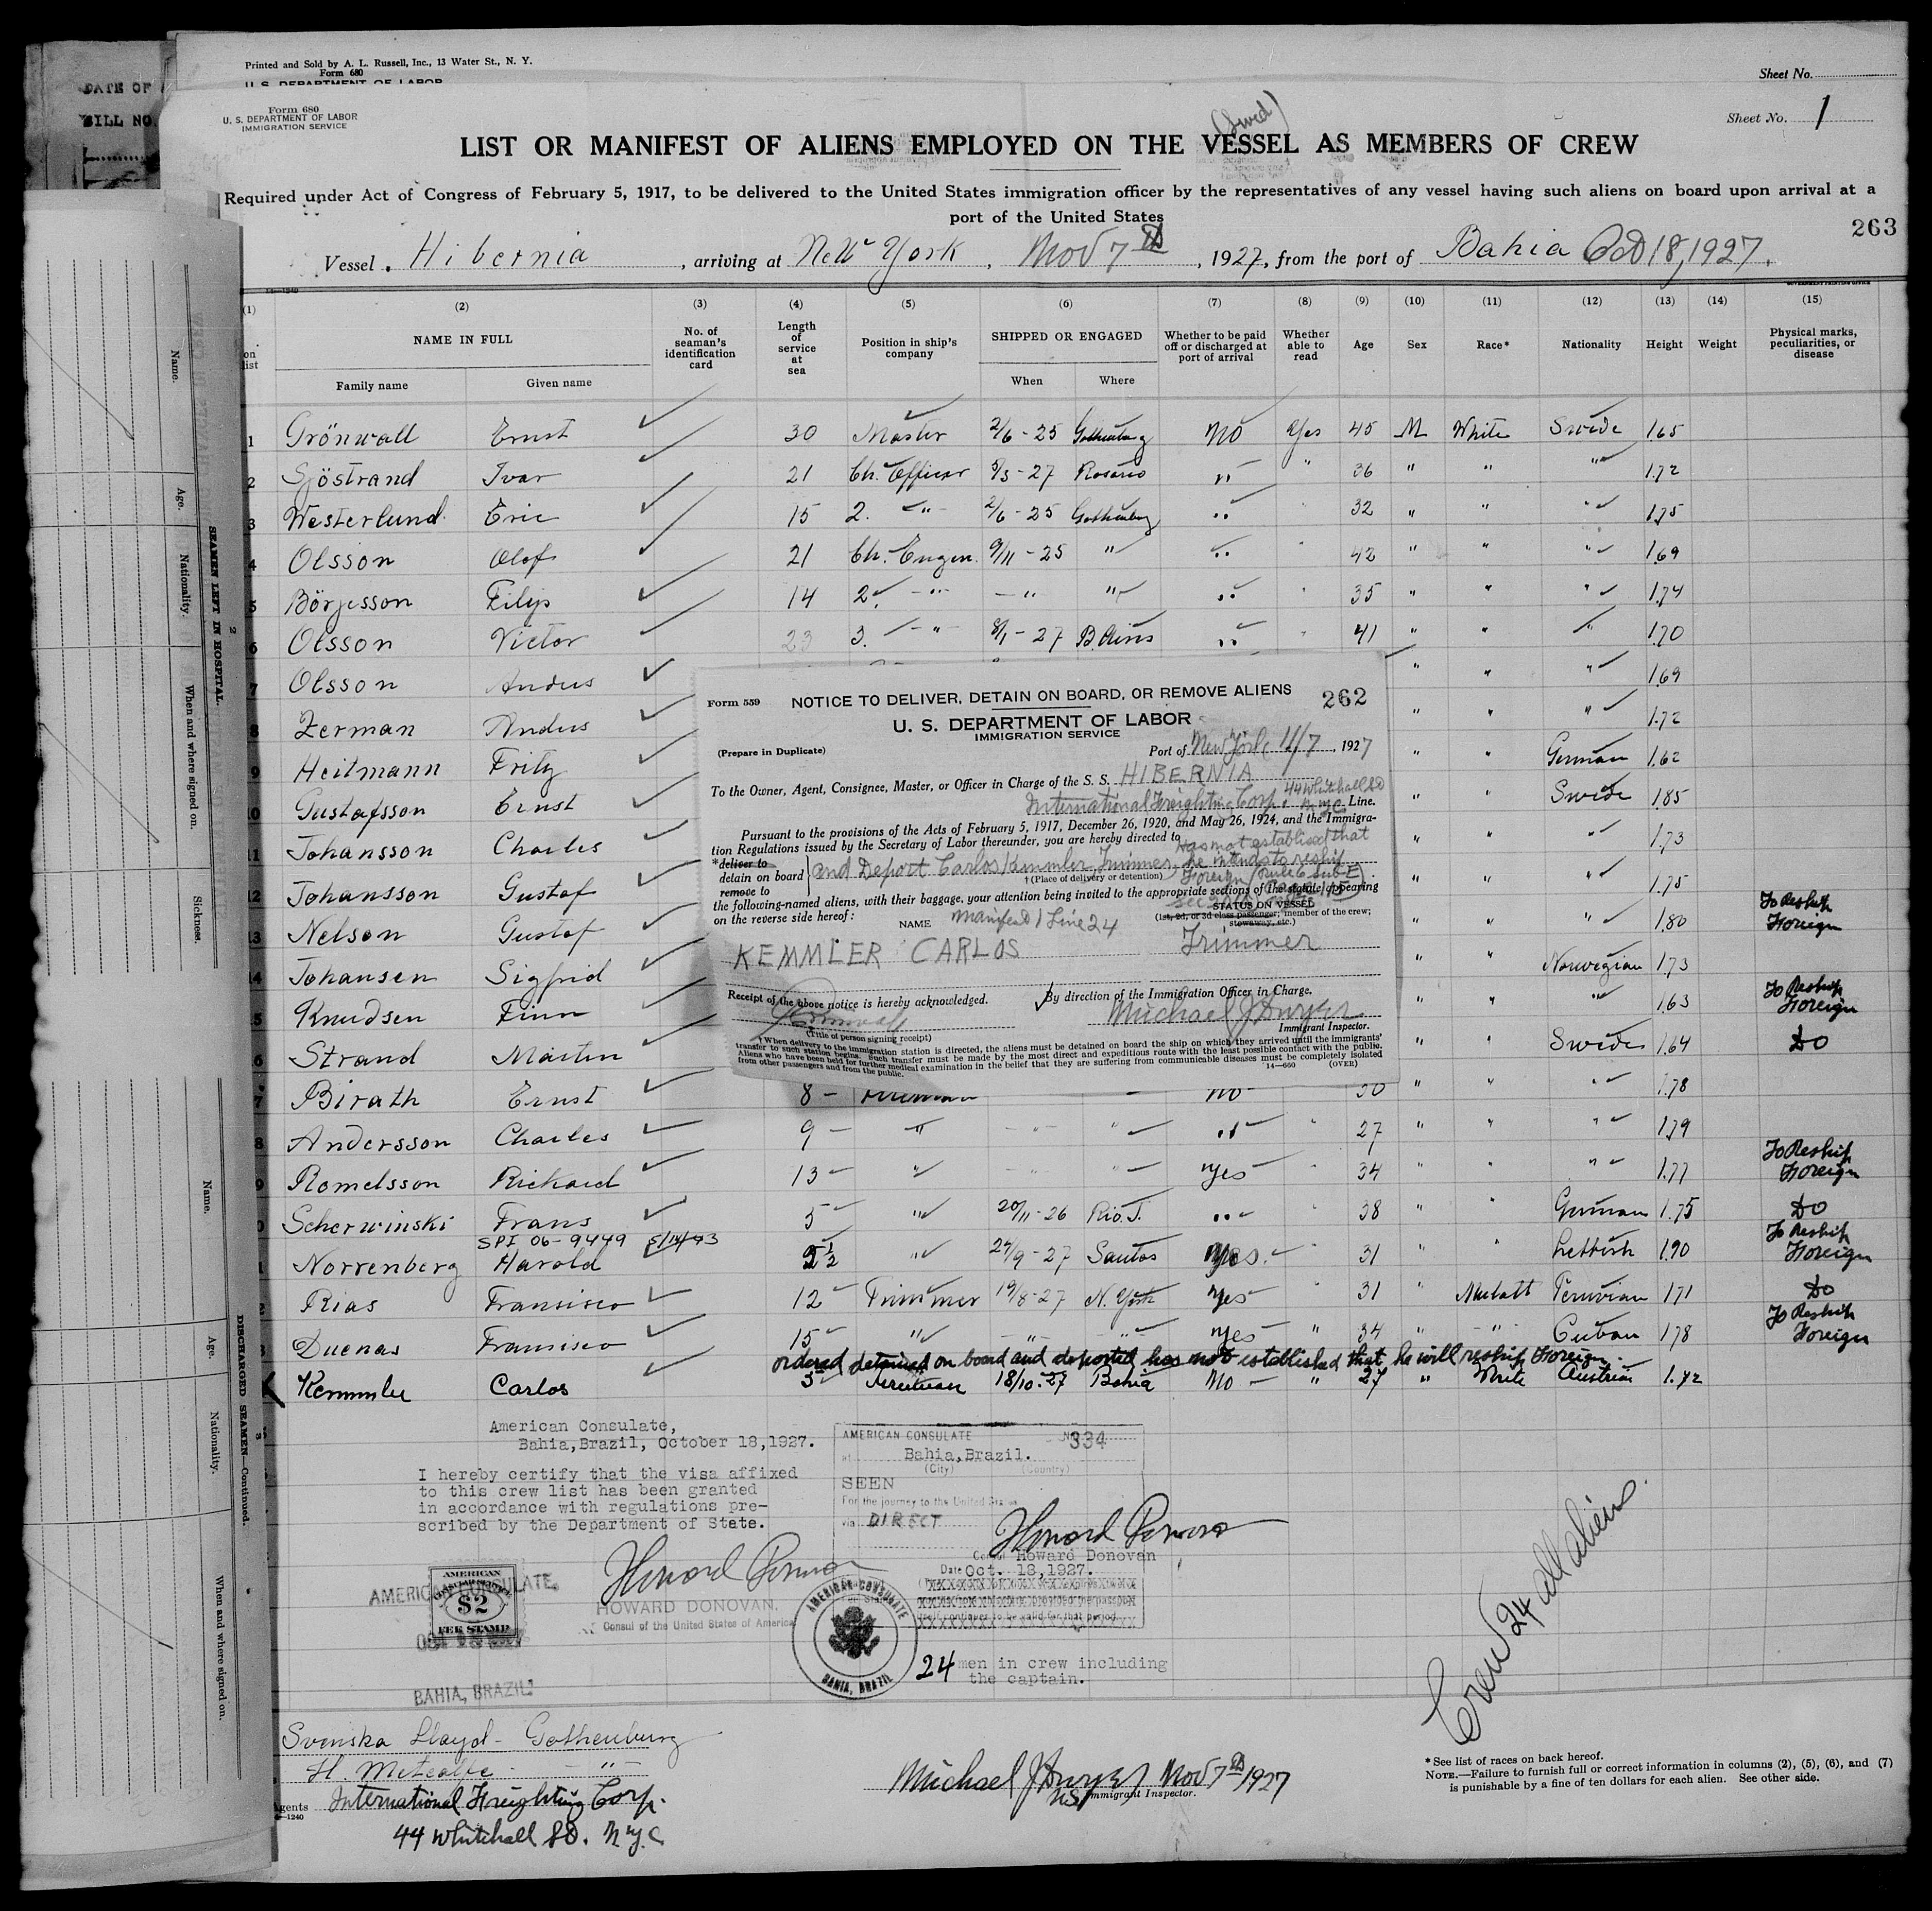 DATE OF
BILL NO.
Printed and Sold by A. L. Russell, Inc., 13 Water St., N. Y.
Form 680
U. S. DEPARTMENT OF LABOR
Sheet No.
Form 680
U. S. DEPARTMENT OF LABOR
IMMIGRATION SERVICE
Sheet No. 1
(Swed)
LIST OR MANIFEST OF ALIENS EMPLOYED ON THE VESSEL AS MEMBERS OF CREW
Required under Act of Congress of February 5, 1917, to be delivered to the United States immigration officer by the representatives of any vessel having such aliens on board upon arrival at a
port of the United States
263
Vessel Hibernia, arriving at New York, Nov 7th, 1927, from the port of Bahia Oct 18, 1927.
(1) (2) (3) (4) (5) (6) (7) (8) (9) (10) (11) (12) (13) (14) (15)
on list NAME IN FULL No. of seaman's identification card Length of service at sea Position in ship's company SHIPPED OR ENGAGED Whether to be paid off or discharged at port of arrival Whether able to read Age Sex Race* Nationality Height Weight Physical marks, peculiarities, or disease
Family name Given name When Where
1 Grönwall Ernst 30 Master 2/6-25 Gothenburg No Yes 45 M White Swede 1.65
2 Sjöstrand Ivar 21 Ch. Officer 5/5-27 Rosario " " 36 " " " 1.72
3 Westerlund Eric 15 2. " 2/6-25 Gothenburg " 32 " " " 1.75
4 Olsson Olof 21 Ch. Engen. 9/11-25 " " 42 " " " 1.69
5 Börjesson Filip 14 2. " " " " 35 " " " 1.74
6 Olsson Victor 23 3. " 8/1-27 B. Aires " 41 " " " 1.70
7 Olsson Andus " " " 1.69
8 Zerman Andus " " " 1.72
9 Heitmann Fritz " " German 1.62
10 Gustafsson Ernst " " Swede 1.85
11 Johansson Charles " " " 1.73
12 Johansson Gustaf " " " 1.75
13 Nelson Gustaf " " " 1.80 To Reship Foreign
14 Johansen Sigfrid " " Norwegian 1.73
15 Knudsen Finn " " " 1.63 To Reship Foreign
6 Strand Martin " " Swede 1.64 Do
7 Birath Ernst 8 Fireman No 30 " " " 1.78
8 Andersson Charles 9 " " " " 27 " " " 1.79
9 Romelsson Rickard 13 " " " Yes 34 " " " 1.77 To Reship Foreign
0 Scherwinski Frans 5 " 20/11-26 Rio. J. " 38 " " German 1.75 Do
SPI 06-9449 5/14/43
1 Norrenberg Harold 2½ " 27/9-27 Santos Yes. 31 " " Lettish 1.90 To Reship Foreign
2 Rias Fransisco 12 Trimmer 19/8-27 N. York Yes 31 " Mulatt Peruvian 171 Do
3 Duenas Fransisco 15 " " " Yes " 34 " " Cuban 178 To Reship Foreign
ordered detained on board and deported has not established that he will reship Foreign
Kemmler Carlos 3 18/10.27 Bahia No " 27 " White Austrian 1.72
Form 559
NOTICE TO DELIVER, DETAIN ON BOARD, OR REMOVE ALIENS
262
U. S. DEPARTMENT OF LABOR
IMMIGRATION SERVICE
(Prepare in Duplicate)
Port of New York 11/7, 1927
To the Owner, Agent, Consignee, Master, or Officer in Charge of the S. S. HIBERNIA
International Freighting Corp. 44 Whitehall St N.Y.C. Line.
Pursuant to the provisions of the Acts of February 5, 1917, December 26, 1920, and May 26, 1924, and the Immigra-
tion Regulations issued by the Secretary of Labor thereunder, you are hereby directed to
Has not established that
*deliver to
detain on board
remove to
and Deport Carlos Kemmler, Trimmer, he intends to reship
Foreign (Rule 6 Sub E)
† (Place of delivery or detention)
the following-named aliens, with their baggage, your attention being invited to the appropriate sections of the statute appearing
on the reverse side hereof:
NAME Manifest 1 Line 24
STATUS ON VESSEL
(1st, 2d, or 3d class passenger; member of the crew;
stowaway, etc.)
KEMMLER CARLOS Trimmer
Receipt of the above notice is hereby acknowledged.
By direction of the Immigration Officer in Charge.
Michael J Dwyer
(Title of person signing receipt)
Immigrant Inspector.
† When delivery to the immigration station is directed, the aliens must be detained on board the ship on which they arrived until the immigrants'
transfer to such station begins. Such transfer must be made by the most direct and expeditious route with the least possible contact with the public.
Aliens who have been held for further medical examination in the belief that they are suffering from communicable diseases must be completely isolated
from other passengers and from the public.
14—660 (OVER)
American Consulate,
Bahia, Brazil, October 18, 1927.
I hereby certify that the visa affixed
to this crew list has been granted
in accordance with regulations pre-
scribed by the Department of State.
AMERICAN CONSULATE No 334
at Bahia, Brazil.
(City) (Country)
SEEN
For the journey to the United States
via DIRECT
Howard Donovan
Consul Howard Donovan
Date Oct. 18, 1927.
Howard Donovan
HOWARD DONOVAN.
Consul of the United States of America
AMERICAN CONSULATE,
BAHIA, BRAZIL
AMERICAN
$2
FEE STAMP
AMERICAN CONSULATE
BAHIA, BRAZIL
24 men in crew including
the captain.
Crew 24 all aliens.
Svenska Lloyd - Gothenburg
H. Metcalfe - "
Agents International Freighting Corp.
44 Whitehall St. N.Y.C
Michael J Dwyer Nov 7th/1927
Immigrant Inspector.
* See list of races on back hereof.
NOTE.—Failure to furnish full or correct information in columns (2), (5), (6), and (7)
is punishable by a fine of ten dollars for each alien. See other side.
Name.
Age.
Nationality.
When and where signed on.
Sickness.
2
SEAMEN LEFT IN HOSPITAL.
Name.
Age.
Nationality.
When and where signed on.
3
DISCHARGED SEAMEN—Continued.